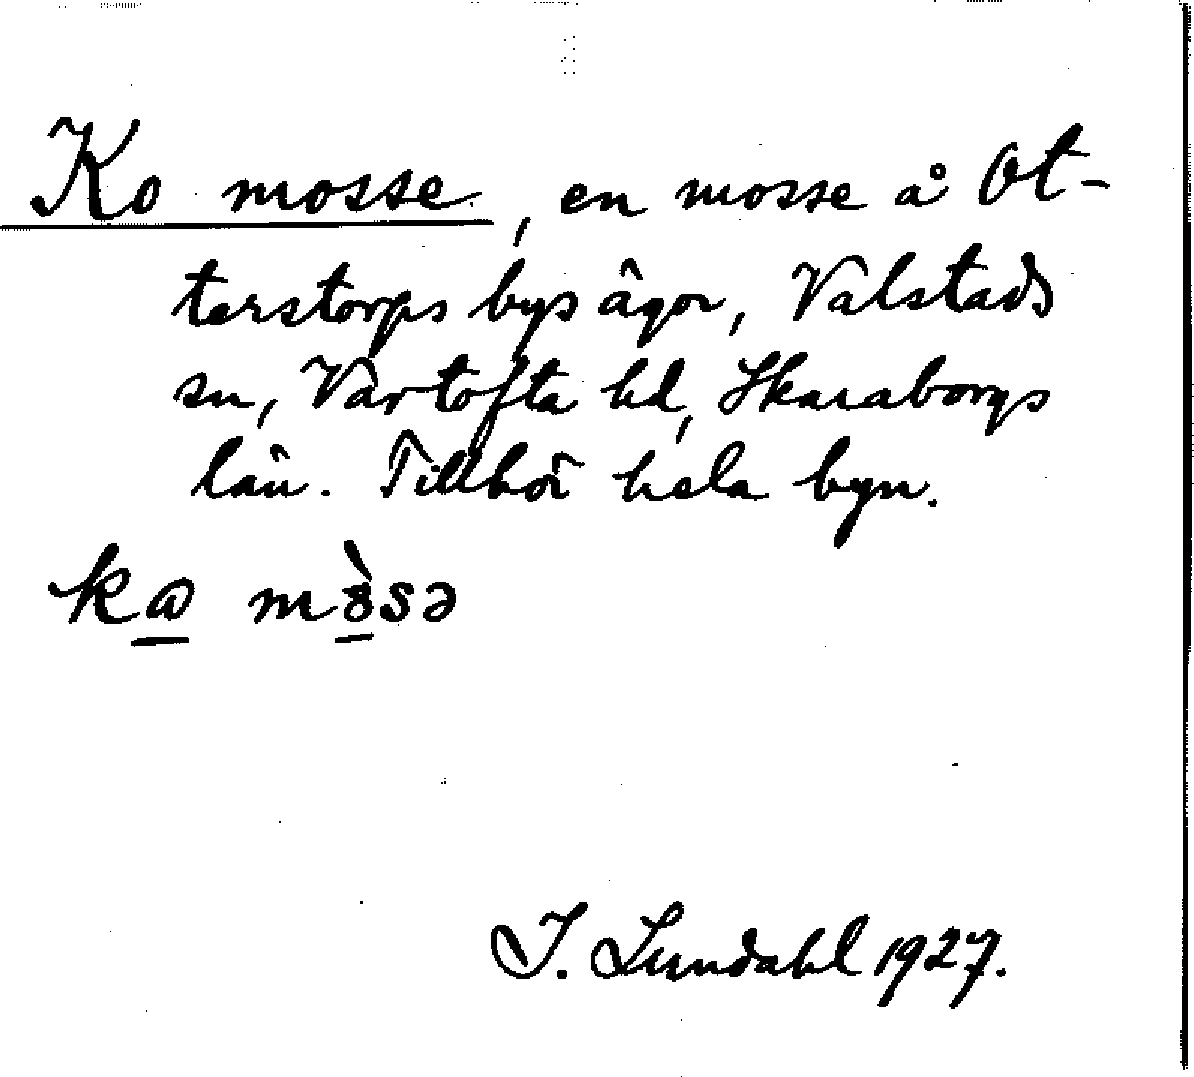 Ko mosse, en mosse å Ot-
terstorps bys ägor, Valstads
sn, Vartofta hd, Skaraborgs
län. Tillhör hela byn.
I. Lundahl 1927.